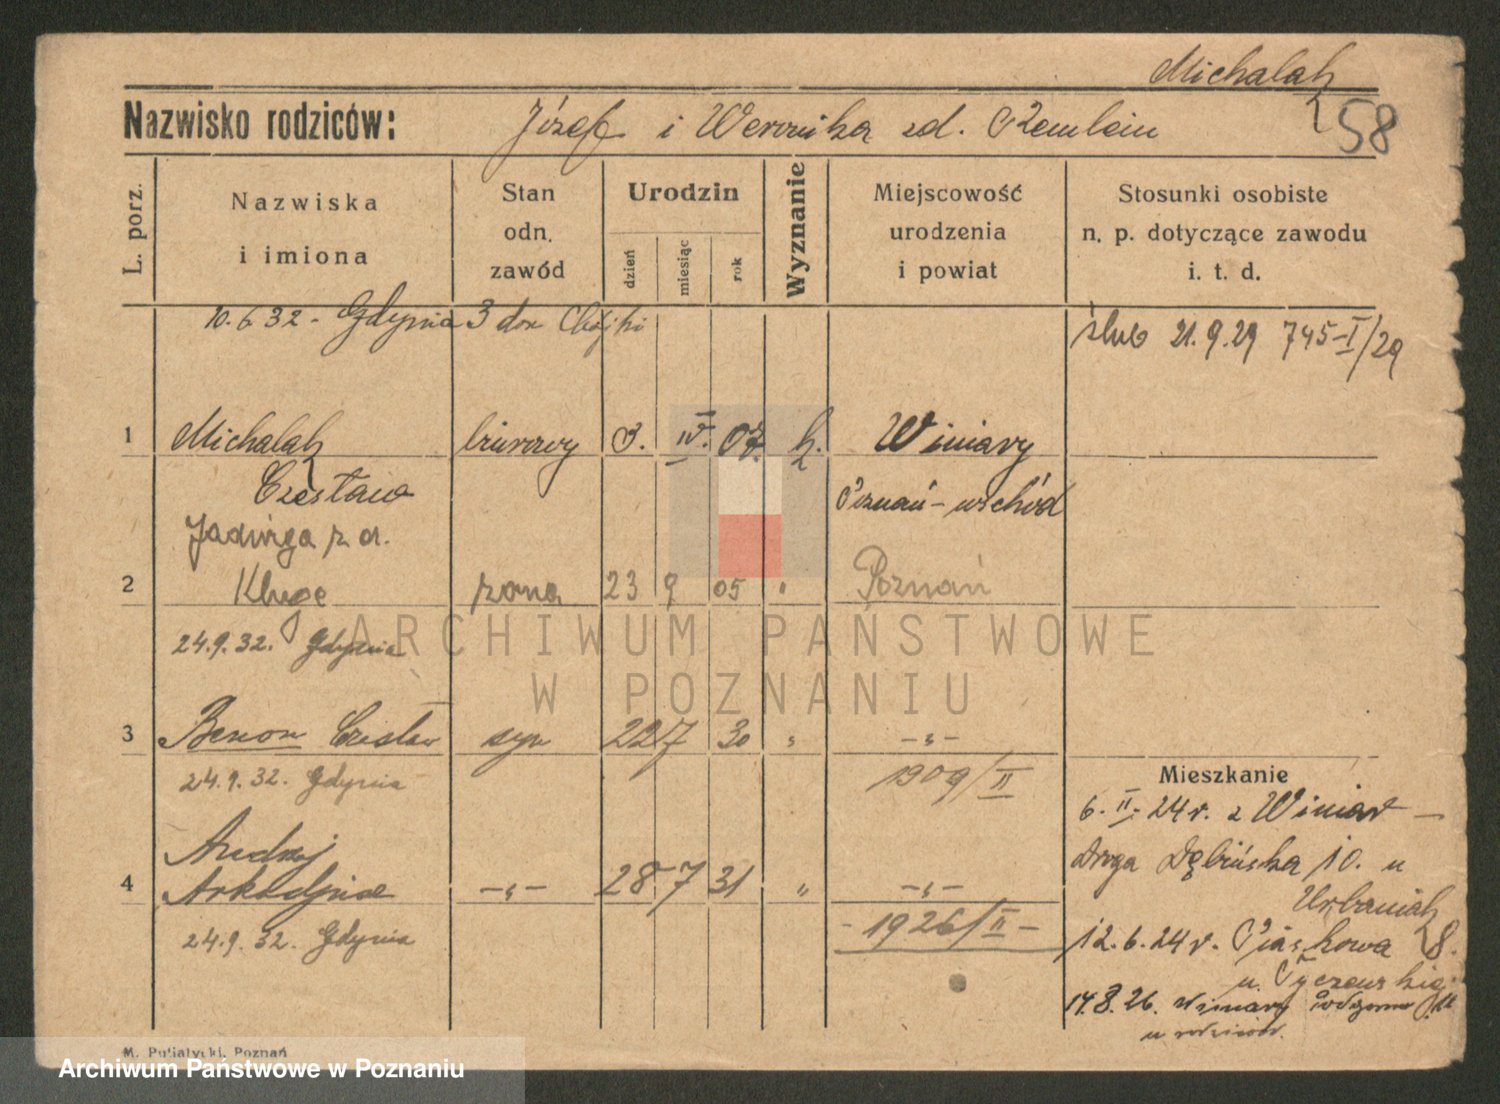 Michalak
Nazwisko rodziców: Józef i Weronika zd. 58
L. porz.
Nazwiska i imiona
Stan odn. zawód
Urodzin
dzień miesiąc rok
Wyznanie
Miejscowość urodzenia i powiat
Stosunki osobiste n. p. dotyczące zawodu i. t. d.
10.6.32 - Gdynia 3 dom
ślub 21.9.29 745-I/29
1 Michalak biurowy 3. IV. 07. k. Winiary
Czesław Poznań-wschód
Jadwiga z d.
2 Kluge żona 23 9 05 " Poznań
24.9.32. Gdynia
3 Benon Czesław syn 22 7 30 " -"-
24.9.32. Gdynia 1909/II
Mieszkanie
6.II.24r. z Winiar -
Andrzej
Droga Dębińska 10. u
4 Arkadjusz -"- 28 7 31 " -"-
Urbaniak
24.9.32. Gdynia - 1926/II -
12.6.24r. Piaskowa 8.
u.
14.8.26. Winiary
u rodziców.
M. Putiatycki, Poznań
ARCHIWUM PAŃSTWOWE
W POZNANIU
Archiwum Państwowe w Poznaniu